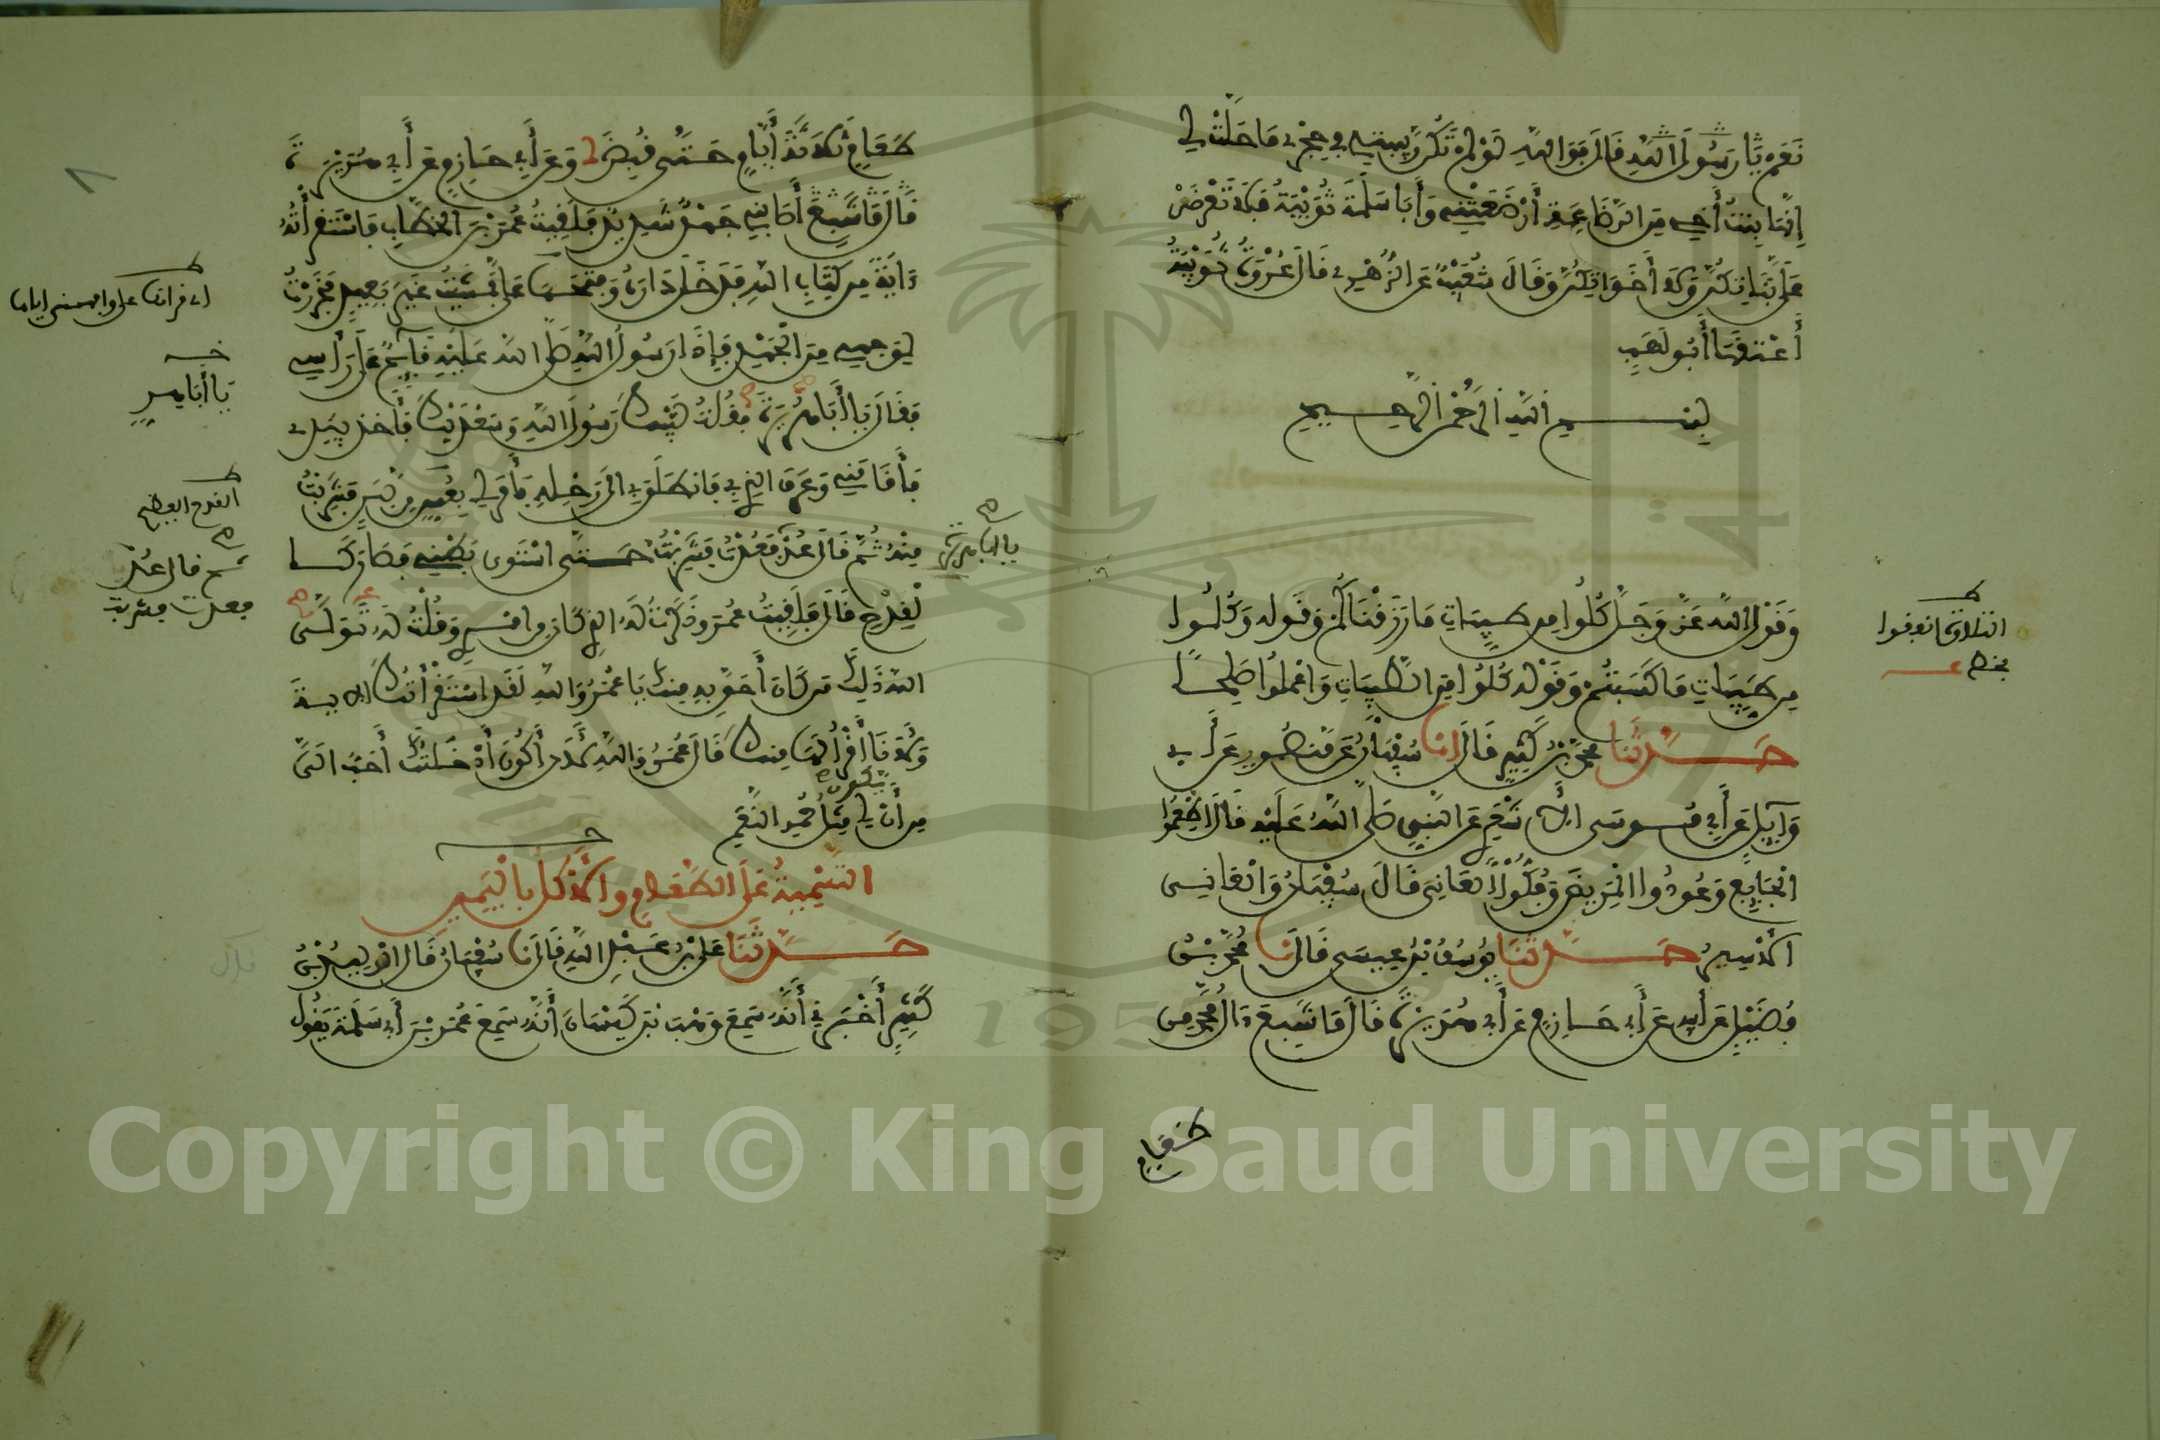 نَعَمْ يَا رَسُولَ اللهِ فَالَ فَوَ اللهِ لَوْ لَمْ تَكُن رَبِيبَتِي فِي حِجْرِي مَا حَلَّتْ لِي
إِنَّهَا بِنْتُ أَخِي مِنَ الرَّضَاعَةِ أَرْضَعَتْنِي وَأَبَا سَلَمَةَ ثُوَيْبَةُ فَلَا تَعْرِضْنَ
عَلَيَّ بَنَاتِكُنَّ وَلَا أَخَوَاتِكُنَّ وَفَالَ شُعَيْبٌ عَنِ الزُّهْرِيِّ فَالَ عُرْوَةُ ثُوَيْبَةُ
أَعْتَفَهَا أَبُو لَهَبٍ
بِسْمِ اللهِ الرَّحْمَنِ الرَّحِيمِ
وَفَوْلِ اللهِ عَزَّ وَجَلَّ كُلُوا مِن طَيِّبَاتِ مَا رَزَفْنَاكُمْ وَفَولِهِ وَكُلُوا
مِن طَيِّبَاتِ مَا كَسَبْتُمْ وَفَوْلِهِ كُلُوا مِنَ الطَّيِّبَاتِ وَاعْمَلُوا صَالِحًا
حَدَّثَنَا مُحَمَّدُ بْنُ كَثِيرٍ فَالَ انَا سُفْيَانُ عَن مَنصُورٍ عَن أَبِي
وَآيِلٍ عَن أَبِي مُوسَى الأَشْعَرِيِّ عَنِ النَّبِيِّ صَلَّى اللهُ عَلَيْهِ فَالَ أَطْعِمُوا
الْجَايِعَ وَعُودُوا الْمَرِيضَ وَفُكُّوا الْعَانِيَ فَالَ سُفْيَانُ وَالْعَانِي
الأَسِيرُ حَدَّثَنَا يُوسُفُ بْنُ عِيسَى فَالَ نَا مُحَمَّدُ بْنُ
فُضَيْلٍ عَن أَبِيهِ عَن أَبِي حَازِمٍ عَن أَبِي هُرَيْرَةَ فَالَ مَا شَبِعَ ءَالُ مُحَمَّدٍ مِن
طَعَامٍ
التلاوة انفقوا
بخط
طَعَامٍ ثَلَاثَةَ أَيَّامٍ حَتَّى فُبِضَ وَعَن أَبِي حَازِمٍ عَن أَبِي هُرَيْرَةَ
أَصَابَنِي جَهْدٌ شَدِيدٌ فَلَفِيتُ عُمَرَ بْنَ الْخَطَّابِ فَاسْتَفْرَأْتُهُ
ءَايَةً مِن كِتَابِ اللهِ فَدَخَلَ دَارَهُ وَفَتَحَهَا عَلَيَّ فَمَشَيْتُ غَيْرَ بَعِيدٍ فَخَرَرْتُ
لِوَجْهِي مِنَ الْجَهْدِ فَإِذَا رَسُولُ اللهِ صَلَّى اللهُ عَلَيْهِ فَايِمٌ عَلَى رَأْسِي
فَفَالَ يَا أَبَا هُرَيْرَةَ فَفُلْتُ لَبَّيْكَ رَسُولَ اللهِ وَسَعْدَيْكَ فَأَخَذَ بِيَدِي
فَأَفَامَنِي وَعَرَفَ الَّذِي بِي فَانطَلَقَ بِي إِلَى رَحْلِهِ فَأَمَرَ لِي بِعُسٍّ مِن لَبَنٍ فَشَرِبْتُ
مِنْهُ ثُمَّ فَالَ عُدْ فَعُدْتُ فَشَرِبْتُ حَتَّى اسْتَوَى بَطْنِي فَصَارَ كَـ
الْفِدْحِ فَالَ فَلَفِيتُ عُمَرَ وَذَكَرْتُ لَهُ الَّذِي كَانَ مِن امْرِي وَفُلْتُ لَهُ تَوَلَّى
اللهُ ذَلِكَ مَن كَانَ أَحَقَّ بِهِ مِنكَ يَا عُمَرُ وَاللهِ لَقَدِ اسْتَفْرَأْتُكَ الايَةَ
وَلَأَنَا أَفْرَأُ لَهَا مِنكَ فَالَ عُمَرُ وَاللهِ لَأَن أَكُونَ أَدْخَلْتُكَ أَحَبُّ إِلَيَّ
مِن أَن يَكُونَ لِي مِثْلُ حُمْرِ النَّعَمِ
التَّسْمِيَةُ عَلَى الطَّعَامِ وَالأَكْلُ بِالْيَمِينِ
حَدَّثَنَا عَلِيُّ بْنُ عَبْدِ اللهِ فَالَ نَا سُفْيَانُ فَالَ الْوَلِيدُ بْنُ
كَثِيرٍ أَخْبَرَنِي أَنَّهُ سَمِعَ وَهْبَ بْنَ كَيْسَانَ أَنَّهُ سَمِعَ عُمَرَ بْنَ أَبِي سَلَمَةَ يَقُولُ
يا أبا هر
القدح العظيم
فال عد
فعدت فشربت
يا أبا هريرة
Copyright © King Saud University
1957